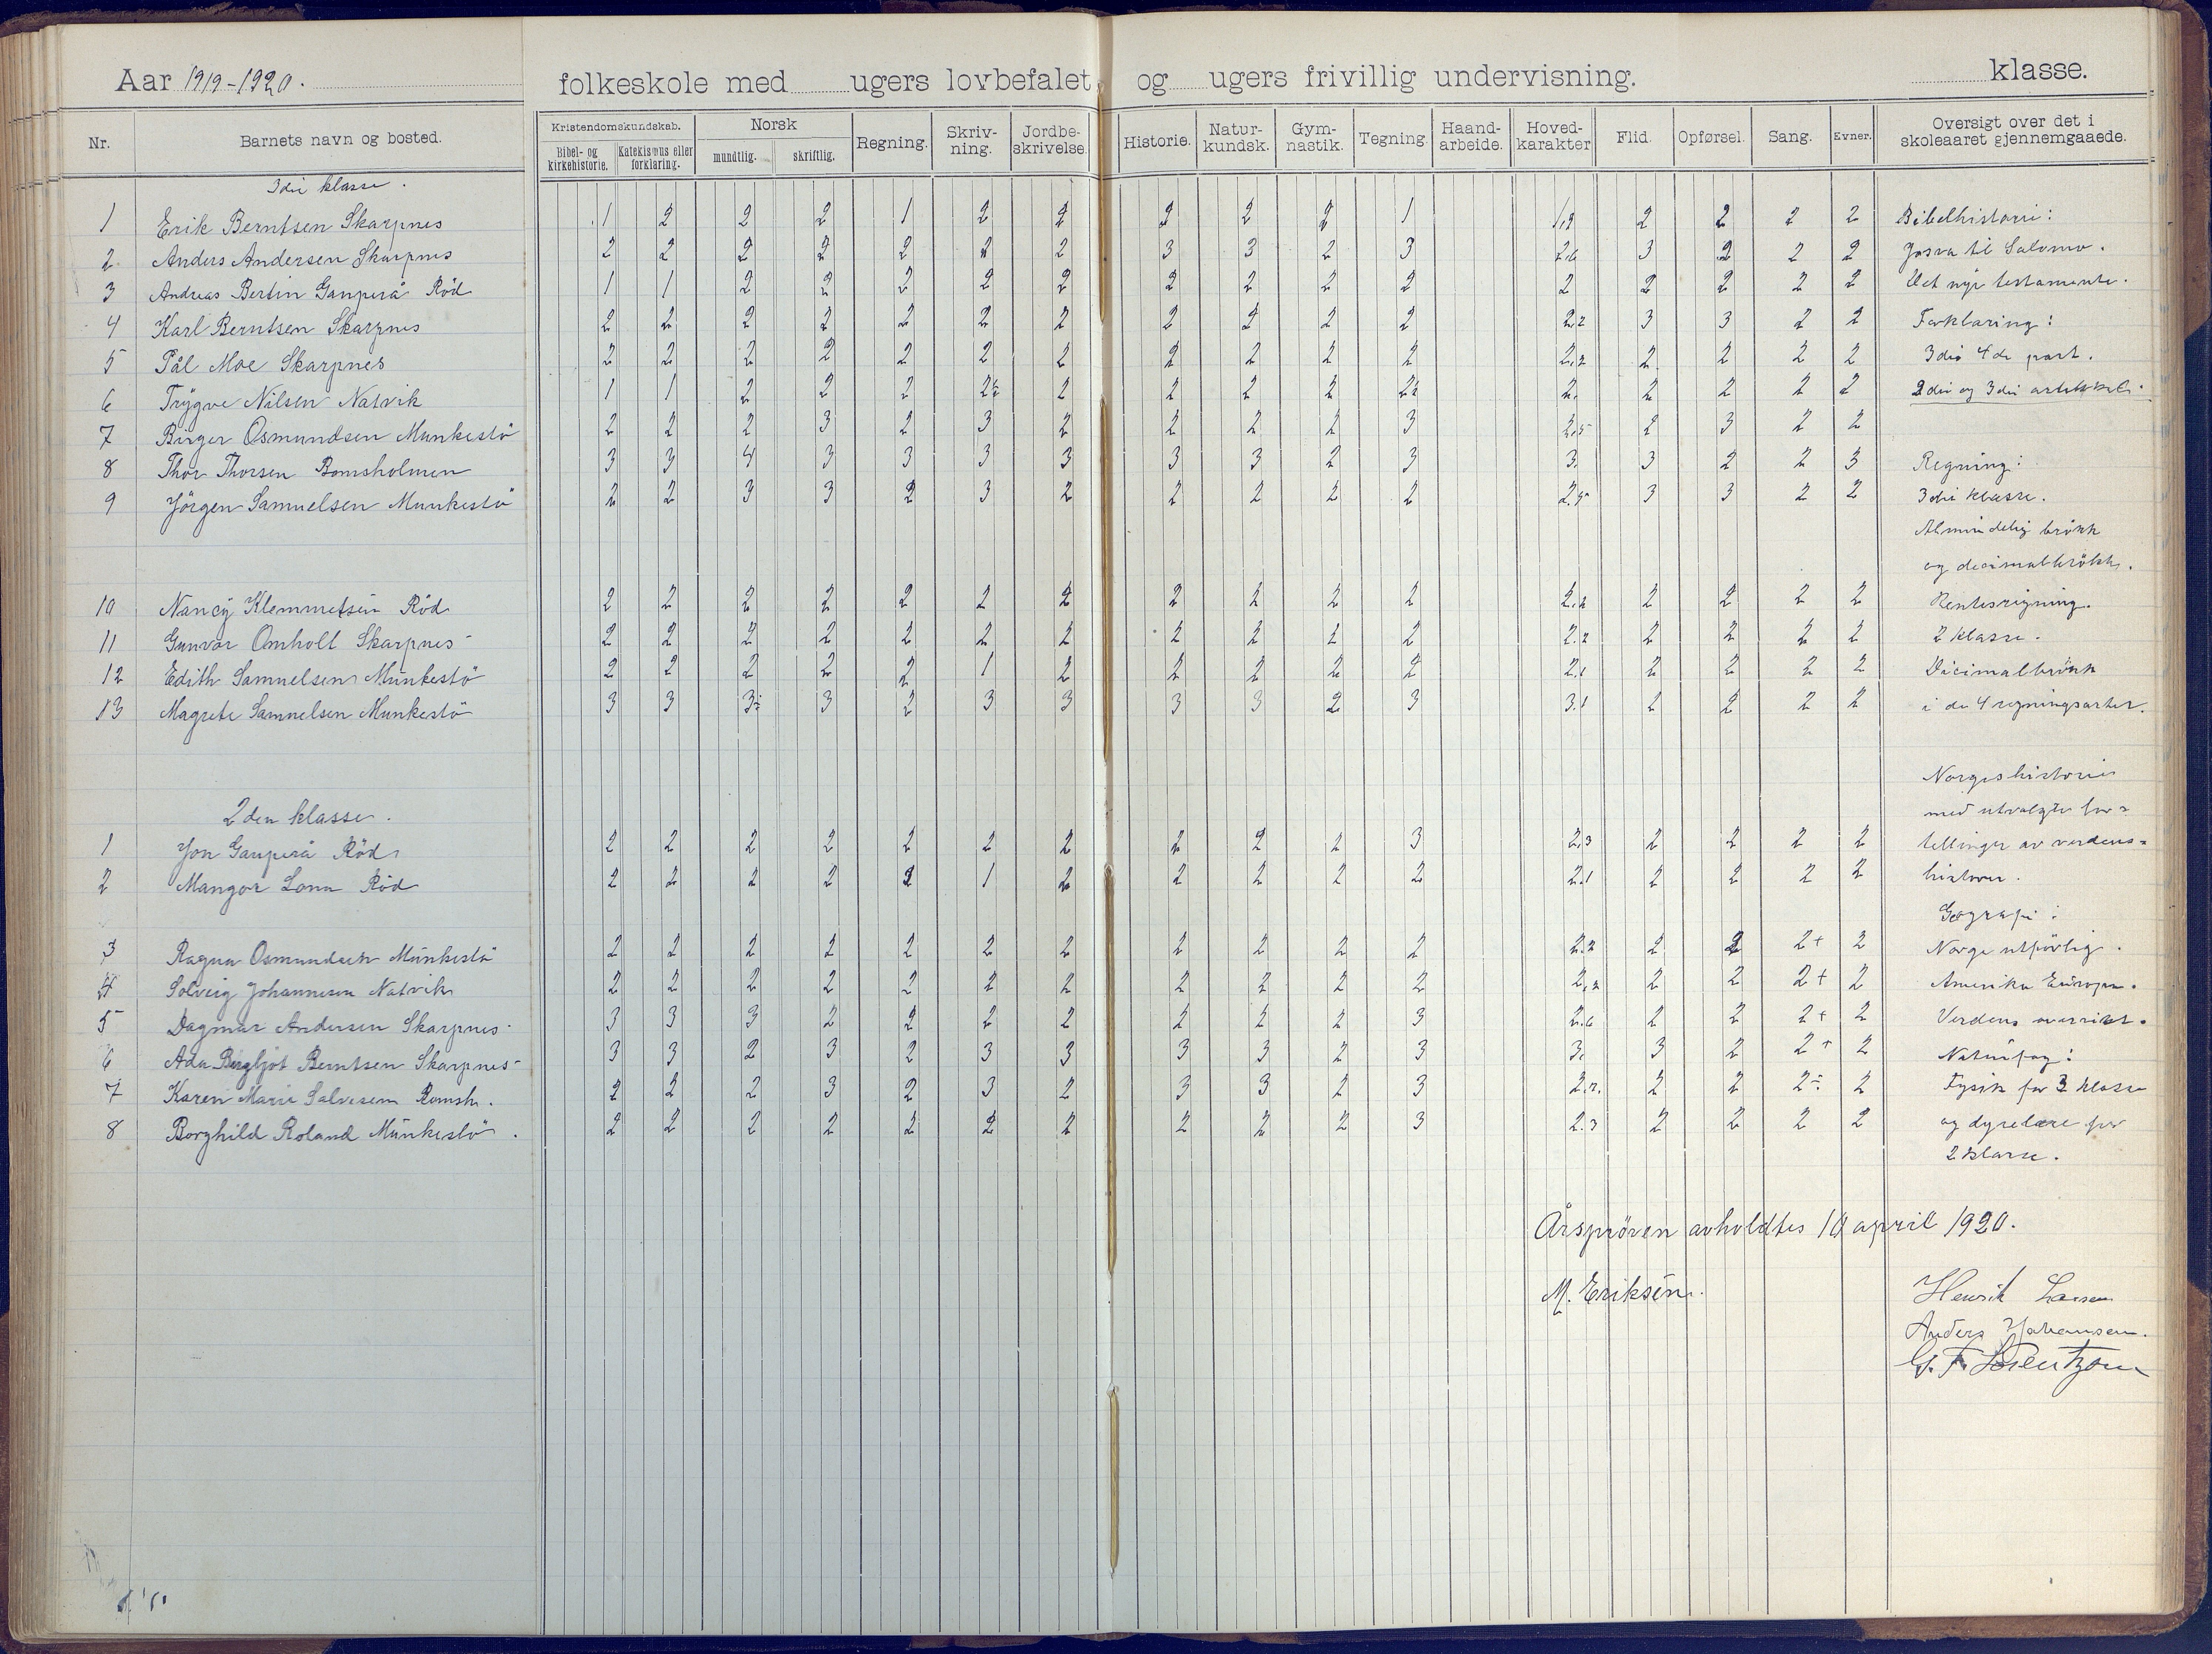 Aar 1919-1920. folkeskole med ugers lovbefalet og ugers frivillig undervisning. klasse.
Nr. Barnets navn og bosted. Kristendomskundskab. Bibel- og kirkehistorie. Katekismus eller forklaring. Norsk mundtlig. skriftlig. Regning. Skriv-ning. Jordbe-skrivelse. Historie. Natur-kundsk. Gym-nastik. Tegning. Haand-arbeide. Hoved-karakter Flid. Opførsel. Sang. Evner. Oversigt over det i skoleaaret gjennemgaaede.
3die klasse.
1 Erik Berntsen Skarpnes 1 2 2 2 1 2 2 2 2 2 1 1,9 2 2 2 2 Bibelhistorie:
2 Anders Andersen Skarpnes 2 2 2 2 2 2 2 3 3 2 3 2,6 3 2 2 2 Josva til Salomo.
3 Andreas Bertin Gauperå Röd 1 1 2 2 2 2 2 2 2 2 2 2 2 2 2 2 Det nye testamente.
4 Karl Berntsen Skarpnes 2 2 2 2 2 2 2 2 2 2 2 2.2 3 3 2 2 Forklaring:
5 Pål Moe Skarpnes 2 2 2 2 2 2 2 2 2 2 2 2,2 2 2 2 2 3die 4de part.
6 Trygve Nilsen Natvik 1 1 2 2 2 2÷ 2 2 2 2 2÷ 2. 2 2 2 2 2den og 3die artikkel.
7 Birger Osmundsen Munkestö 2 2 2 3 2 3 2 2 2 2 3 2.5 2 3 2 2
8 Thor Thorsen Bomsholmen 3 3 4 3 3 3 3 3 3 2 3 3. 3 2 2 3 Regning:
9 Jörgen Samuelsen Munkestö 2 2 3 3 2 3 2 2 2 2 2 2.5 3 3 2 2 3die klasse.
Almindelig brökk
og decimalbrökk.
10 Nancy Klemmetsen Röd 2 2 2 2 2 2 2 2 2 2 2 2.2 2 2 2 2 Rentesregning.
11 Gunvor Omholt Skarpnes 2 2 2 2 2 2 2 2 2 2 2 2.2 2 2 2 2 2 klasse.
12 Edith Samuelsen Munkestö 2 2 2 2 2 1 2 2 2 2 2 2.1 2 2 2 2 Decimalbrökk
13 Magrete Samuelsen Munkestö 3 3 3÷ 3 2 3 3 3 3 2 3 3.1 2 2 2 2 i de 4 regningsarter.
Norgeshistorie
2den klasse. med utvalgte for=
1 Jon Gauperå Röd 2 2 2 2 2 2 2 2 2 2 3 2.3 2 2 2 2 tellinger av verdens=
2 Mangor Lona Röd 2 2 2 2 2 1 2 2 2 2 2 2.1 2 2 2 2 historie.
Geografi:
3 Ragna Osmundsen Munkestö 2 2 2 2 2 2 2 2 2 2 2 2.2 2 2 2+ 2 Norge utförlig.
4 Solveig Johannesen Natvik 2 2 2 2 2 2 2 2 2 2 2 2,2 2 2 2+ 2 Amerika Europa.
5 Dagmar Andersen Skarpnes 3 3 3 2 2 2 2 2 2 2 3 2.6 2 2 2+ 2 Verdens oversikt.
6 Ada Bergljot Berntsen Skarpnes 3 3 2 3 2 3 3 3 3 2 3 3. 3 2 2+ 2 Naturfag:
7 Karen Marie Salvesen Romsh. 2 2 2 3 2 3 2 3 3 2 3 2.7. 2 2 2÷ 2 Fysik for 3 klasse
8 Borghild Roland Munkestö. 2 2 2 2 2 2 2 2 2 2 3 2.3 2 2 2 2 og dyrelære for
2 klasse.
Årspröven avholdtes 10 april 1920.
M. Eriksen. Henrik Larsen
Anders Johansen.
G. F. Lorentzen